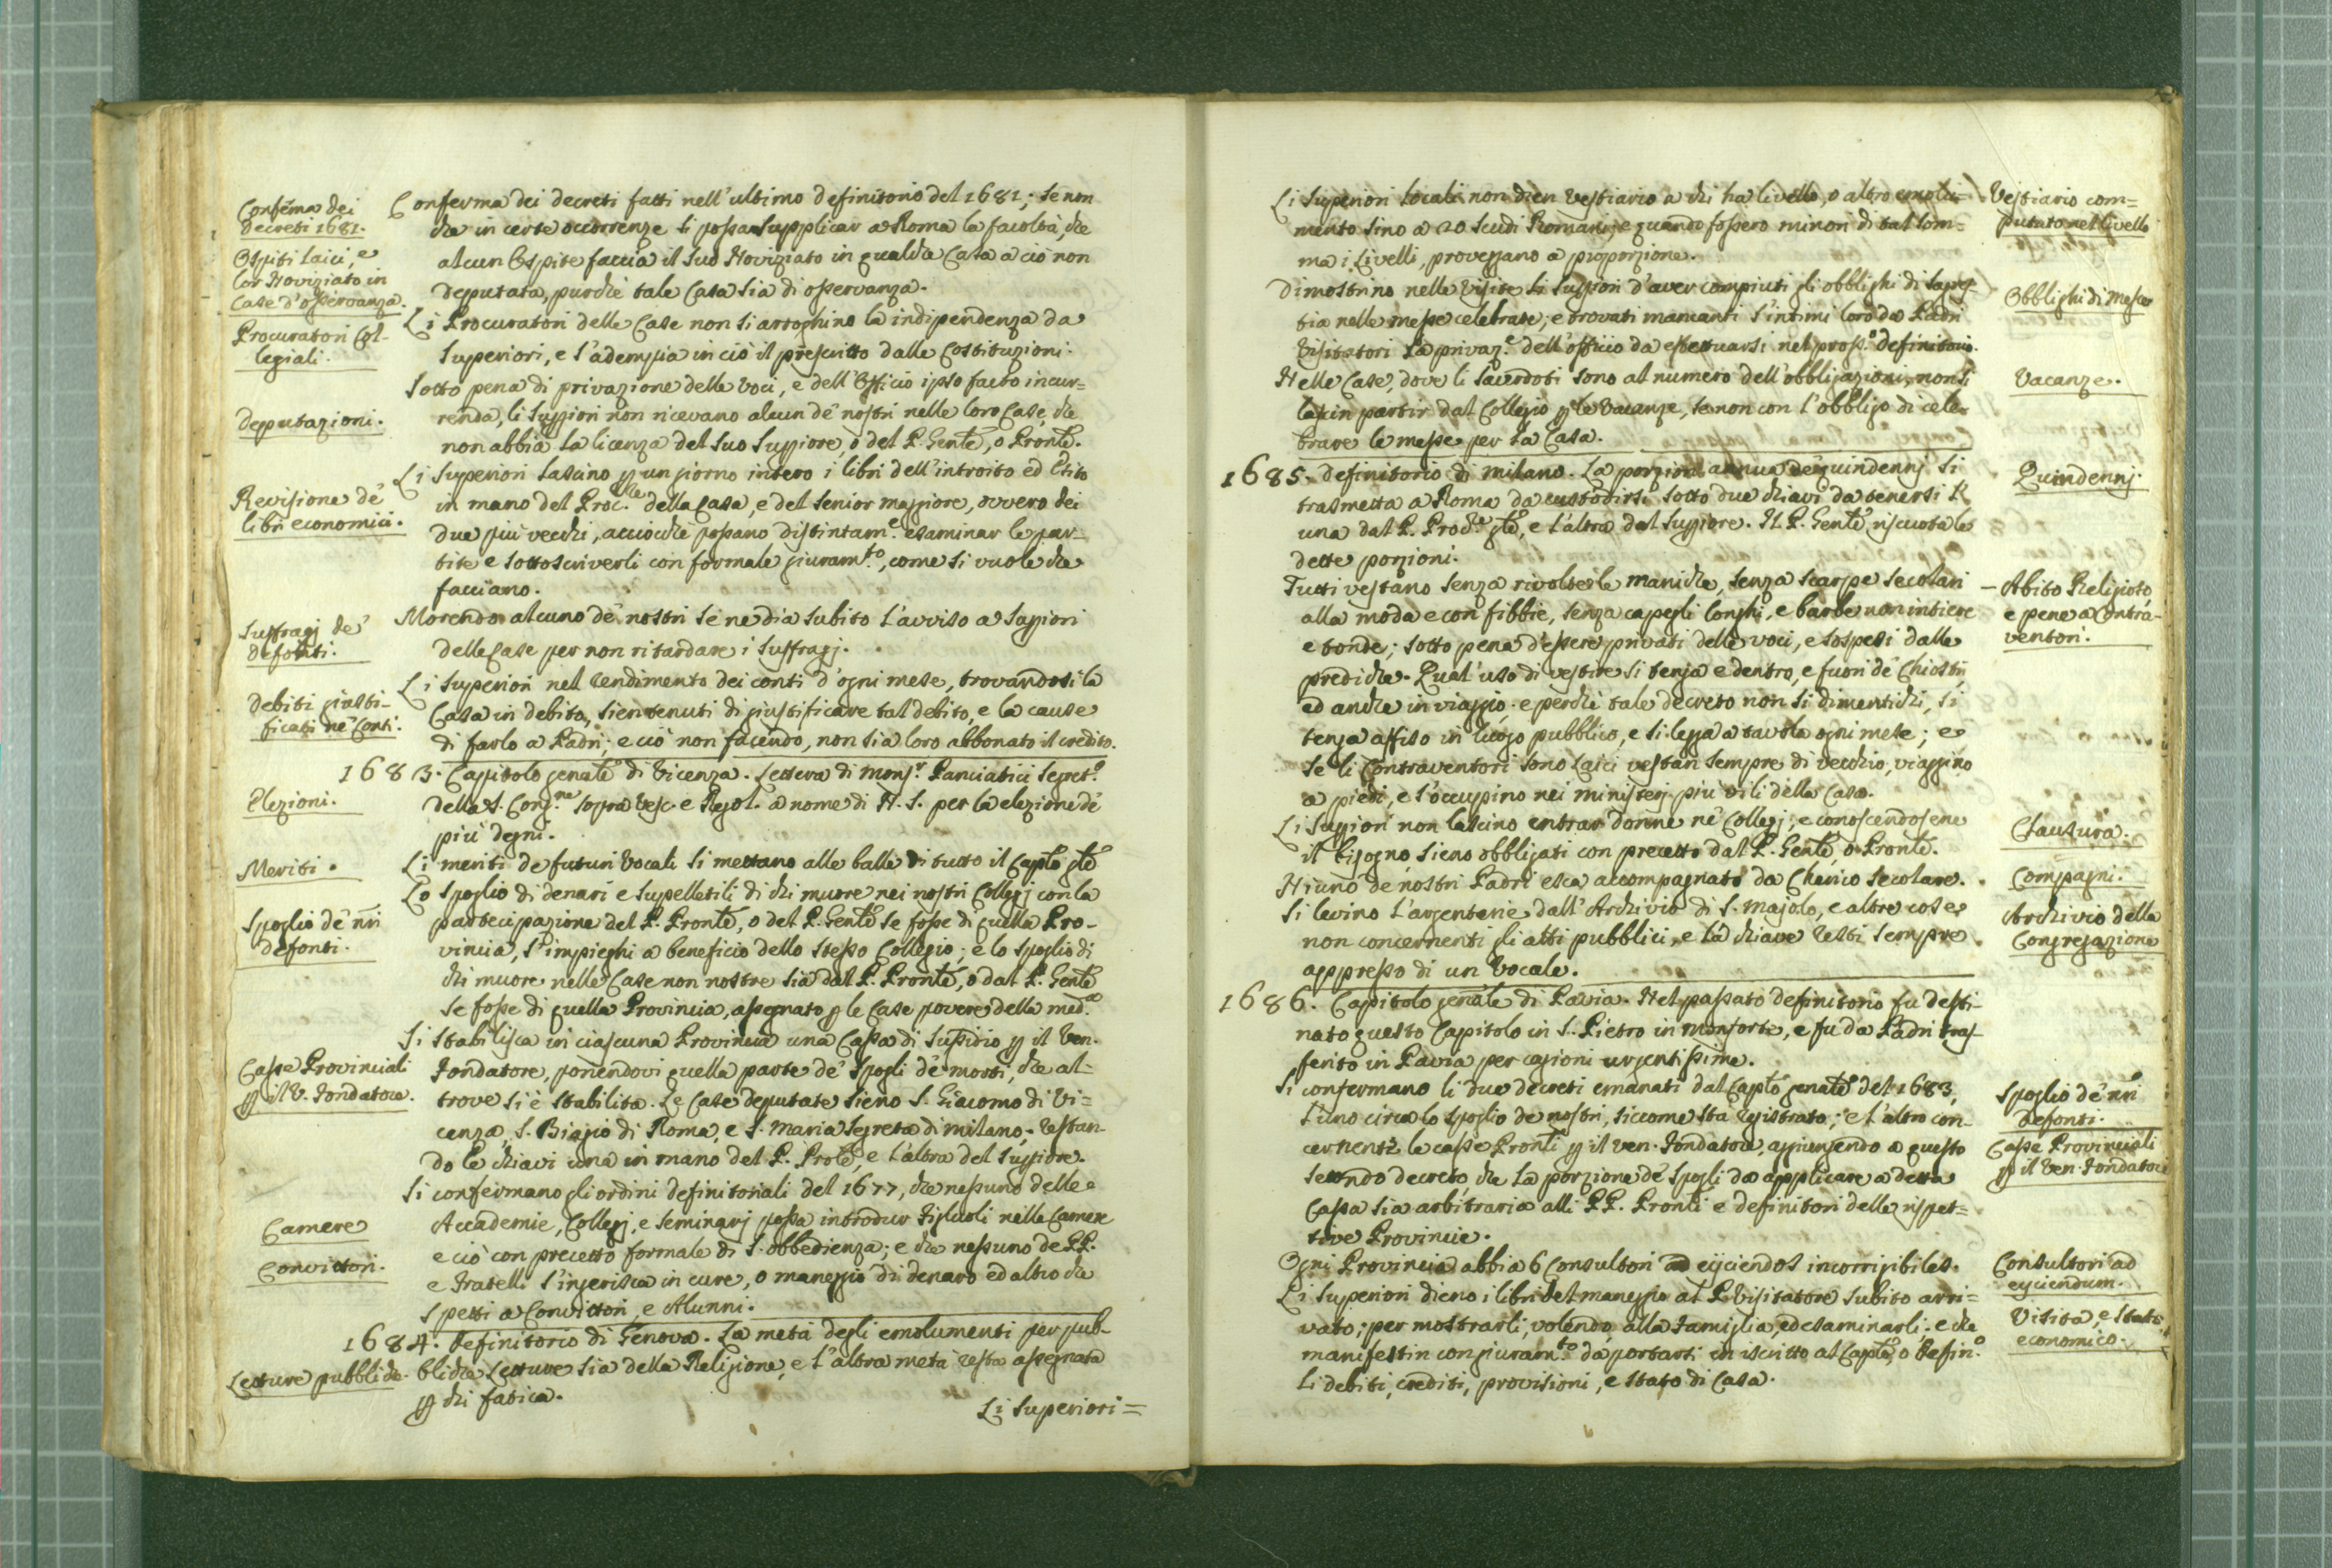 Conferma dei
decreti 1681.
Ospiti laici, e
lor Noviziato in
Case d'osservanza.
Procuratori Col-
legiali.
Deputazioni.
Revisione de'
libri economici.
Suffragj de'
defonti.
Debiti giusti-
ficati ne' Conti.
Elezioni.
Meriti.
Spoglio de' nri
defonti.
Casse Provinciali
p il V. Fondatore.
Camere
Convittori.
Letture pubbliche.
Conferma dei decreti fatti nell'ultimo definitorio del 1681; se non
che in certe occorrenze si possa supplicar a Roma la facoltà, che
alcun Ospite faccia il suo Noviziato in qualche Casa a ciò non
deputata, purchè tale Casa sia di osservanza.
Li Procuratori delle Case non si arroghino la indipendenza da
Superiori, e s'adempia in ciò il prescritto dalle Costituzioni.
Sotto pena di privazione delle voci, e dell'Officio ipso facto incur=
renda, li Suppiori non ricevano alcun de' nostri nelle loro Case, che
non abbia la licenza del suo Suppiore, o del P. Gentle, o Pronle.
Li Superiori lascino p un giorno intero i libri dell'introito ed Esito
in mano del Proc.re della Casa, e del Senior maggiore, ovvero dei
due più vecchi, acciocchè possano distintam.e esaminar le par=
tite e sottoscriverli con formale giuram.to, come si vuole che
facciano.
Morendo alcuno de' nostri se ne dia subito l'avviso a Suppiori
delle Case per non ritardare i Suffragj.
Li Superiori nel rendimento dei conti d'ogni mese, trovandosi la
Casa in debito, sien tenuti di giustificare tal debito, e la cause
di farlo a Padri; e ciò non facendo, non sia loro abbonato il credito.
1683. Capitolo genãle di Vicenza. Lettera di Mons.r Panciatici Segret.o
della S. Cong.ne sopra Vesc. e Regol. a nome di N. S. per la elezione de'
più degni.
Li meriti de futuri Vocali si mettano alle balle di tutto il Caplo gle
Lo spoglio di denari e supelletili di chi muore nei nostri Collegj con la
partecipazione del P. Pronle, o del P. Genle se fosse di quella Pro-
vincia, s'impieghi a beneficio dello stesso Collegio; e lo spoglio di
chi muore nelle Case non nostre sia dal P. Pronle, o dal P. Genle
se fosse di quella Provincia, assegnato p le Case povere della med.a
Si stabilisca in ciascuna Provincia una Cassa di sussidio p il Ven.
Fondatore, ponendovi quella parte de' Spogli de' morti, che al-
trove si è stabilita. Le Case deputate sieno S. Giacomo di Vi=
cenza, S. Biagio di Roma, e S. Maria Segreta di Milano; restan-
do le chiavi una in mano del P. Prole, e l'altra del Suppiore.
Si confermano gli ordini definitoriali del 1677, che nessuno delle
Accademie, Collegj, e Seminarj possa introdur Figliuoli nelle Camere
e ciò con precetto formale di S. obbedienza; e che nessuno de PP.
e Fratelli s'ingerisca in cure, o maneggio di denaro ed altro che
spetti a Convittori, e Alunni.
1684. Definitorio di Genova. La metà degli emolumenti per pub-
bliche Letture sia della Religione, e l'altra metà resta assegnata
p chi fatica.
Li Superiori=
Li Superiori locali non dien vestiario a chi ha livello, o altro emolu=
mento sino a 20 scudi Romani; e quando fossero minori di tal som=
ma i Livelli, proveggano a proporzione.
Dimostrino nelle visite li Suppiori d'aver compiuti gli obblighi di Sagres-
tia nelle messe celebrate; e trovati mancanti s'intimi loro da Padri
Visitatori la privaz.e dell'officio da effettuarsi nel pross.o definitorio.
Nelle Case, dove li sacerdoti sono al numero dell'obbligazioni, non si
lascin partir dal Collegio p le Vacanze, se non con l'obbligo di cele-
brare le messe per la Casa.
1685. Definitorio di Milano. La porzion annua de quindennj si
trasmetta a Roma da custodirsi sotto due chiavi da tenersi
una dal P. Proc.re gle, e l'altra dal Suppiore. Il P. Genle riscuota le
dette porzioni.
Tutti vestano senza rivolter le maniche, senza scarpe secolari
alla moda e con fibbie, senza capegli longhi, e barbe non intiere
e tonde; sotto pena d'essere privati delle voci, e sospesi dalle
prediche. Qual uso di vestire si tenga e dentro, e fuori de' Chiostri
ed anche in viaggio. e perchè tale decreto non si dimentichi, si
tenga affiso in luogo pubblico, e si legga a tavola ogni mese; e
se li Contraventori sono Laici vestan sempre di vecchio, viaggino
a piedi, e s'occupino nei ministerj più vili della Casa.
Li Suppiori non lascino entrar donne ne' Collegj; e conoscendosene
il bisogno, sieno obbligati con precetto dal P. Genle, o Pronle.
Niuno de nostri Padri esca accompagnato da Cherico secolare.
Si levino l'argenterie dall'Archivio di S. Majolo, e altre cose
non concernenti gli atti pubblici, e la chiave resti sempre
appresso di un Vocale.
1686. Capitolo genãle di Pavia. Nel passato definitorio fu desti-
nato questo Capitolo in S. Pietro in Monforte, e fu da Padri tras-
ferito in Pavia per cagioni urgentissime.
Si confermano li due decreti emanati dal Caplo genãle del 1683,
l'uno circa lo spoglio de nostri, siccome sta registrato; e l'altro con-
cernente le casse Pronli p il ven. Fondatore, aggiungendo a questo
secondo decreto, che la porzione de' Spogli da applicare a detta
Cassa sia arbitraria alli PP. Pronli e definitori delle rispet=
tive Provincie.
Ogni Provincia abbia 6 Consultori ad ejiciendos incorrigibiles.
Li Superiori dieno i libri del maneggio al P. Visitatore subito arri=
vato; per mostrarli, volendo, alla Famiglia, ed esaminarli. e che
manifestin con giuram.to da portarsi in iscritto al Caplo, o Defin.o
li debiti, crediti, provisioni, e stato di Casa.
Vestiario com=
putato nel livello
Obblighi di Messe
Vacanze.
Quindennj.
Abito Religioso
e pene a Contra-
ventori.
Clausura.
Compagni.
Archivio della
Congregazione
Spoglio de' nri
defonti.
Casse Provinciali
p il Ven. Fondatore
Consultori ad
ejiciendum.
Visita, e Stato
economico.